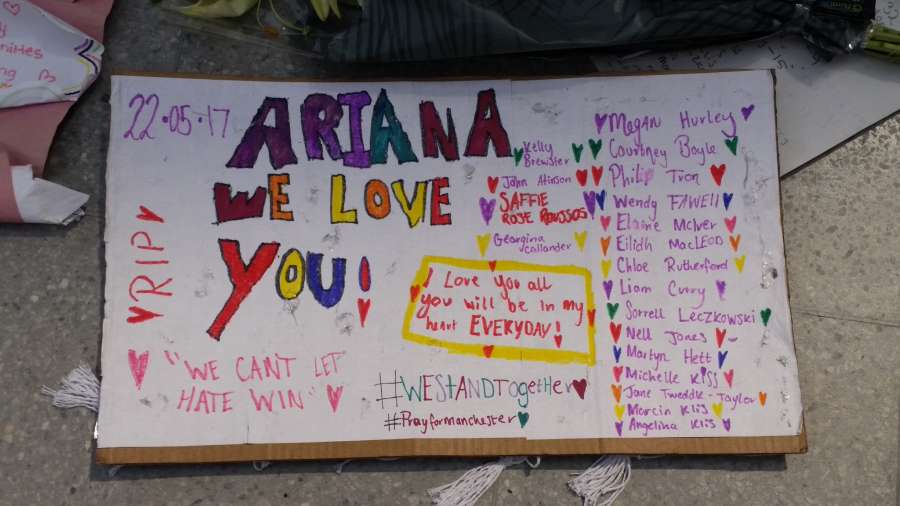 22·05·17
ARIANA
WE LOVE
YOU!
RIP
"WE CANT LET
HATE WIN"
Kelly
Brewster
John Atinson
SAFFIE
ROSE ROUSSOS
Georgina
Callander
I Love you all
you will be in my
heart EVERYDAY!
#WEStANDTogetHer
#Prayformanchester
Megan Hurley
Courtney Boyle
Philip Tron
Wendy FAWEll
Elaine McIver
Eilidh MacLEOD
Chloe Rutherford
Liam Curry
Sorrell Leczkowski
Nell Jones
Martyn Hett
Michelle KiSS
Jane Tweddle-Taylor
Marcin Klis
Angelina Klis